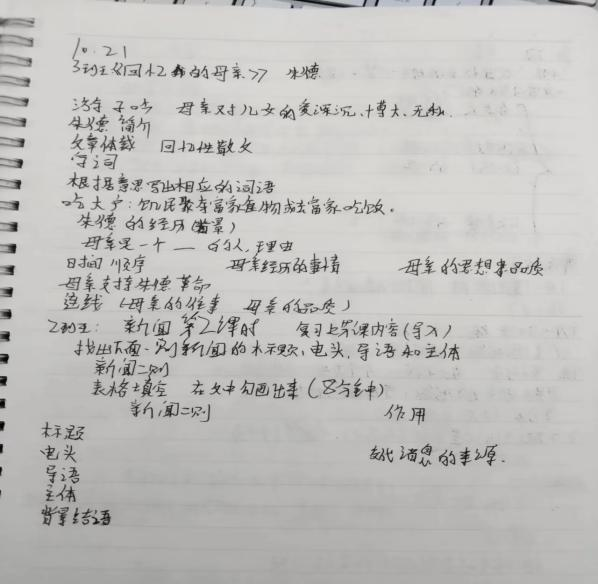 10.21
3班王 《回忆我的母亲》 朱德
游子吟 母亲对儿女的爱深沉、博大、无私.
朱德简介
文章体裁 回忆性散文
字词
根据意思写出相应的词语
吃大户:饥民聚夺富家食物或去富家吃饭.
朱德的经历(背景)
母亲是一个 —— 的人,理由
时间顺序 母亲经历的事情 母亲的思想和品质
母亲支持朱德革命
连线(母亲的往事 母亲的品质)
2班王: 新闻 第2课时 复习上节课内容(导入)
找出下面一则新闻的标题,电头,导语和主体
新闻二则
表格填空 在文中勾画出来(8分钟)
新闻二则 作用
标题
电头 交代消息的来源.
导语
主体
背景结语